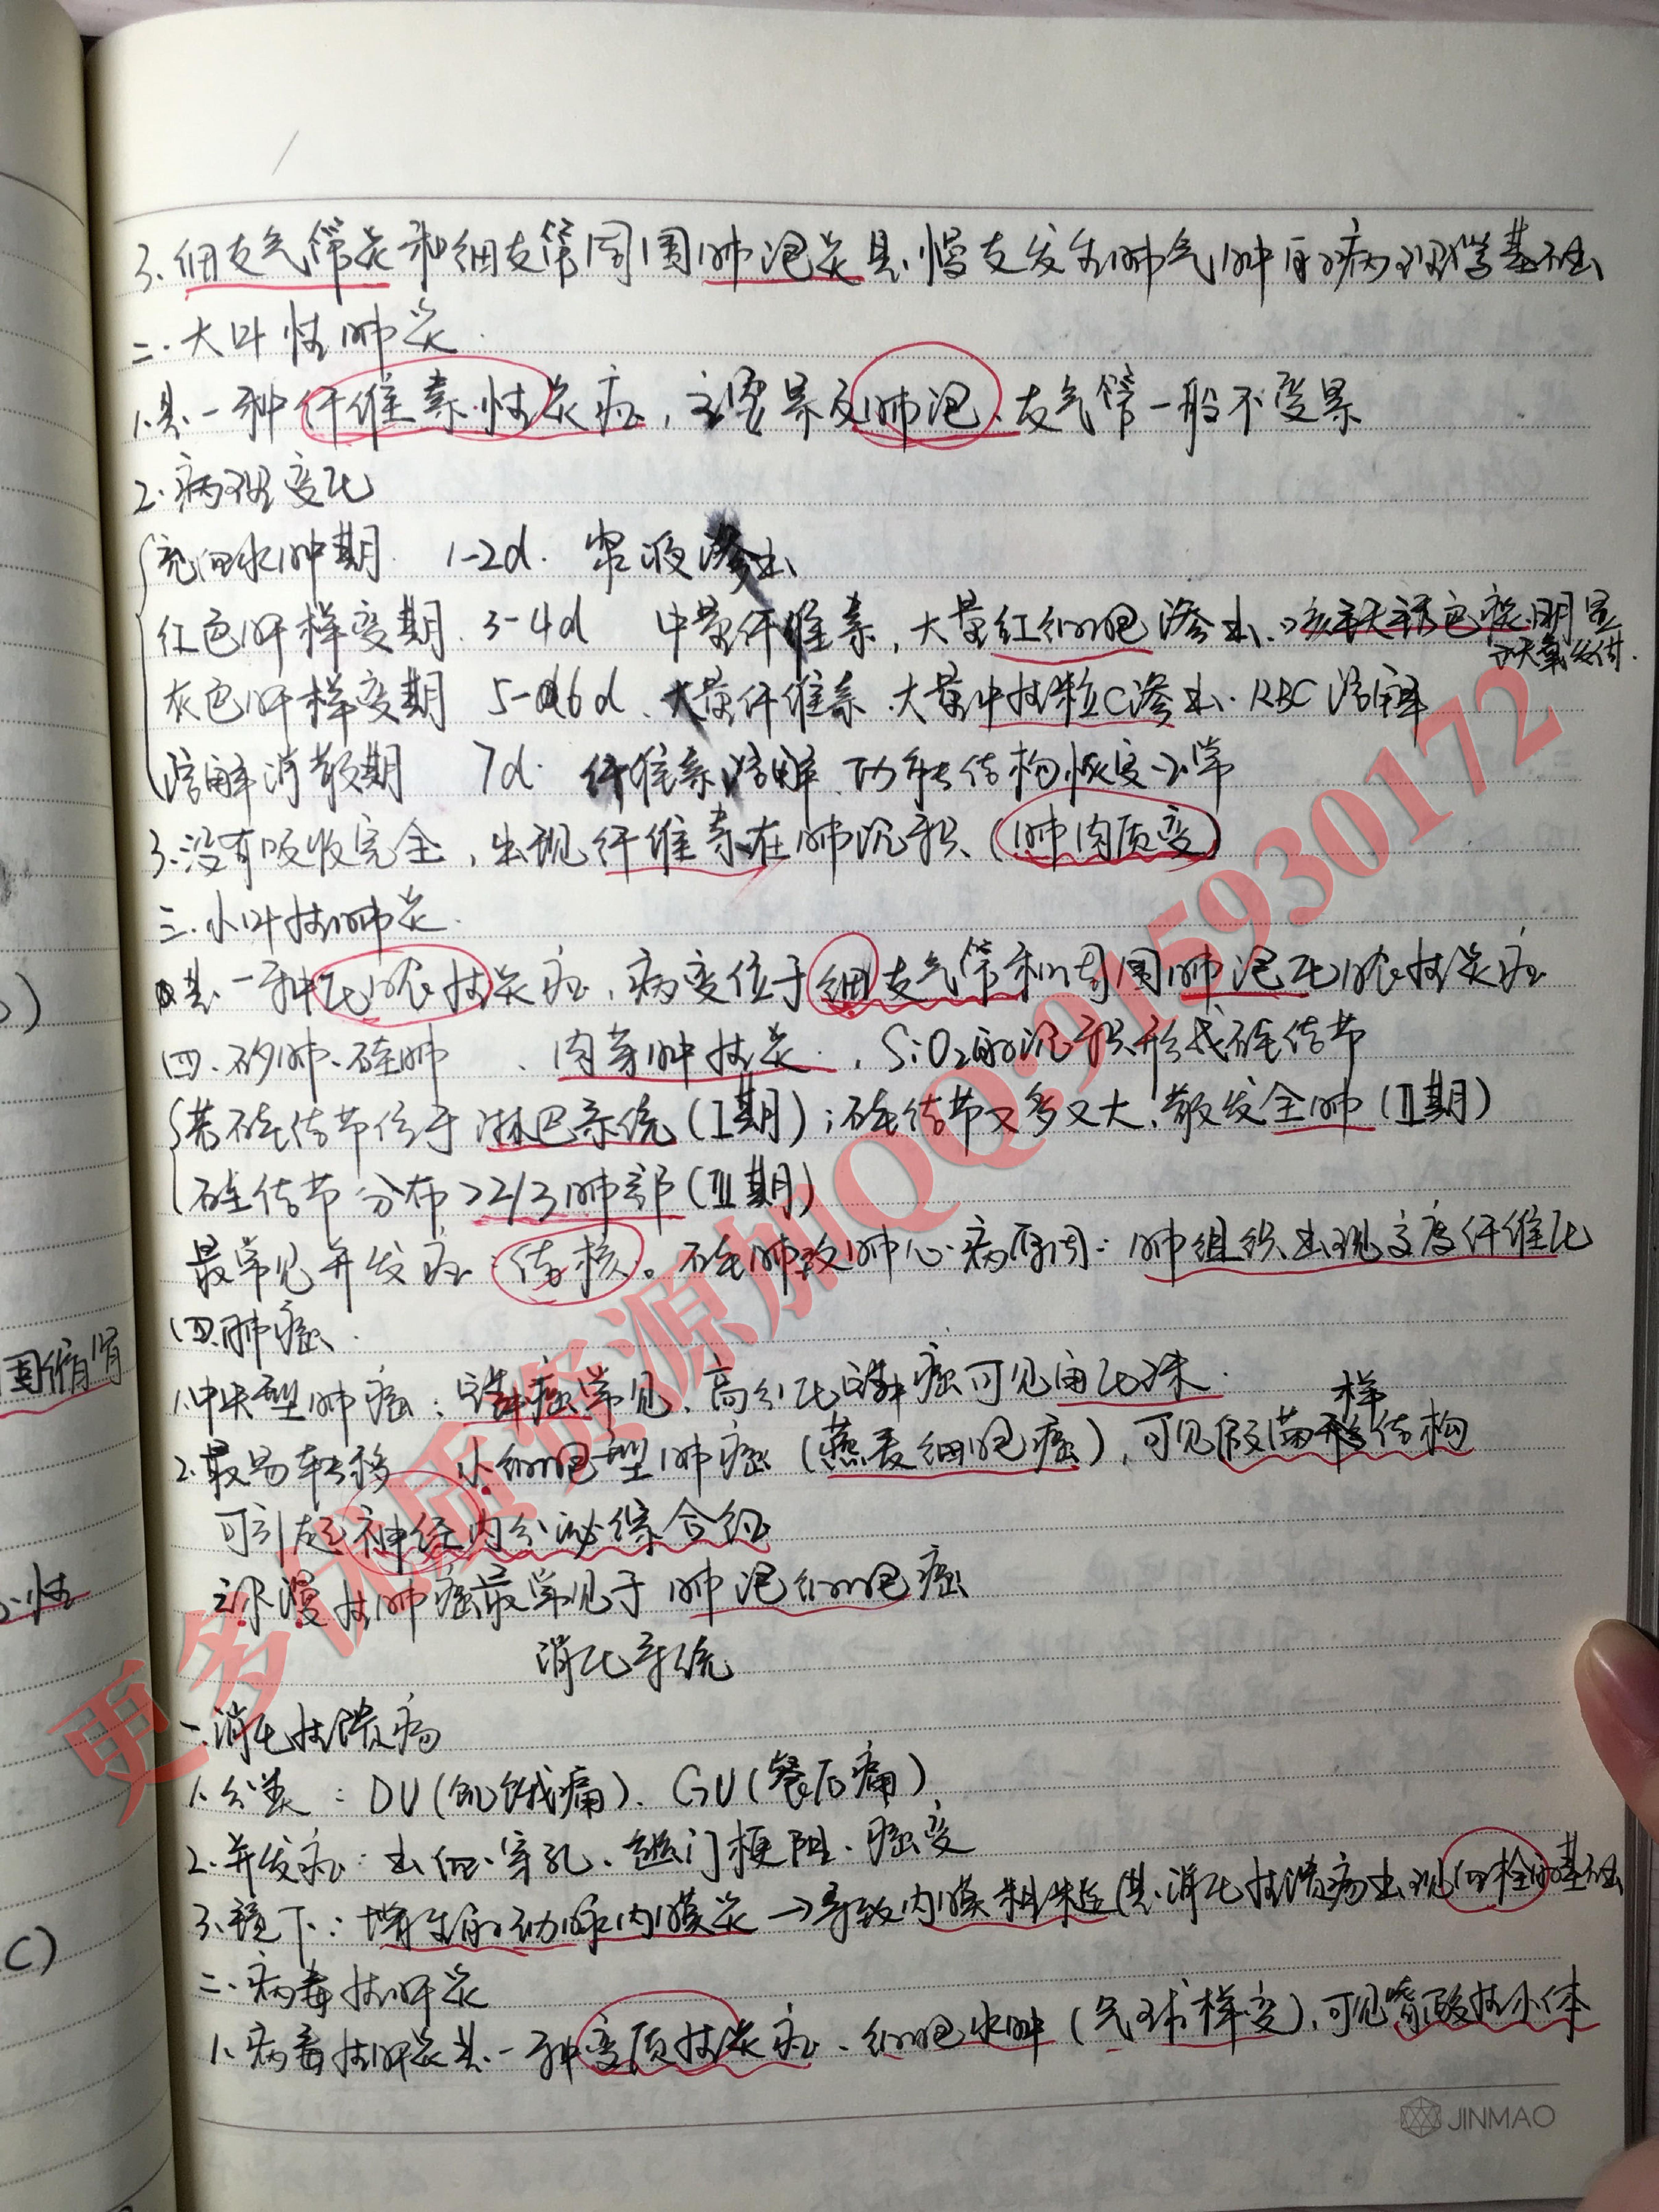 3.细支气管炎和细支管周围肺泡炎是慢支发生肺气肿的病理学基础
二.大叶性肺炎.
1.是一种纤维素性炎症,主要累及肺泡、支气管一般不受累
2.病理变化
充血水肿期 1-2d. 浆液渗出
红色肝样变期. 3-4d 中量纤维素,大量红细胞渗出.铁锈色痰.明显
缺氧发绀.
灰色肝样变期 5-6d、大量纤维素.大量中性粒C渗出.RBC溶解
溶解消散期 7d. 纤维素溶解.功能结构恢复正常
3.没有吸收完全,出现纤维素在肺沉积(肺肉质变)
三.小叶性肺炎.
是一种化脓性炎症,病变位于细支气管和周围肺泡化脓性炎症
四.矽肺、硅肺 、肉芽肿性炎.,SiO2的沉积形成硅结节
若硅结节位于淋巴系统(I期);硅结节又多又大、散发全肺(II期)
硅结节分布>2/3肺部(III期)
最常见并发症:结核。硅肺致肺心病原因:肺组织出现高度纤维化
四.肺癌.
1.中央型肺癌:鳞癌常见、高分化鳞癌可见角化珠.
2.最易转移 小细胞型肺癌(燕麦细胞癌),可见假菊形样结构
可引起神经内分泌综合征
弥漫性肺癌最常见于肺泡细胞癌
消化系统
一.消化性溃疡
1.分类:DU(饥饿痛)、GU(餐后痛)
2.并发症:出血、穿孔、幽门梗阻、癌变
3.镜下:增生的动脉内膜炎→导致内膜粗糙(是消化性溃疡出现血栓的基础
二.病毒性肝炎
1.病毒性肝炎是一种变质性炎症、细胞水肿(气球样变),可见嗜酸性小体
JINMAO
固缩肾
性
C)
更多优质资源加QQ:915930172